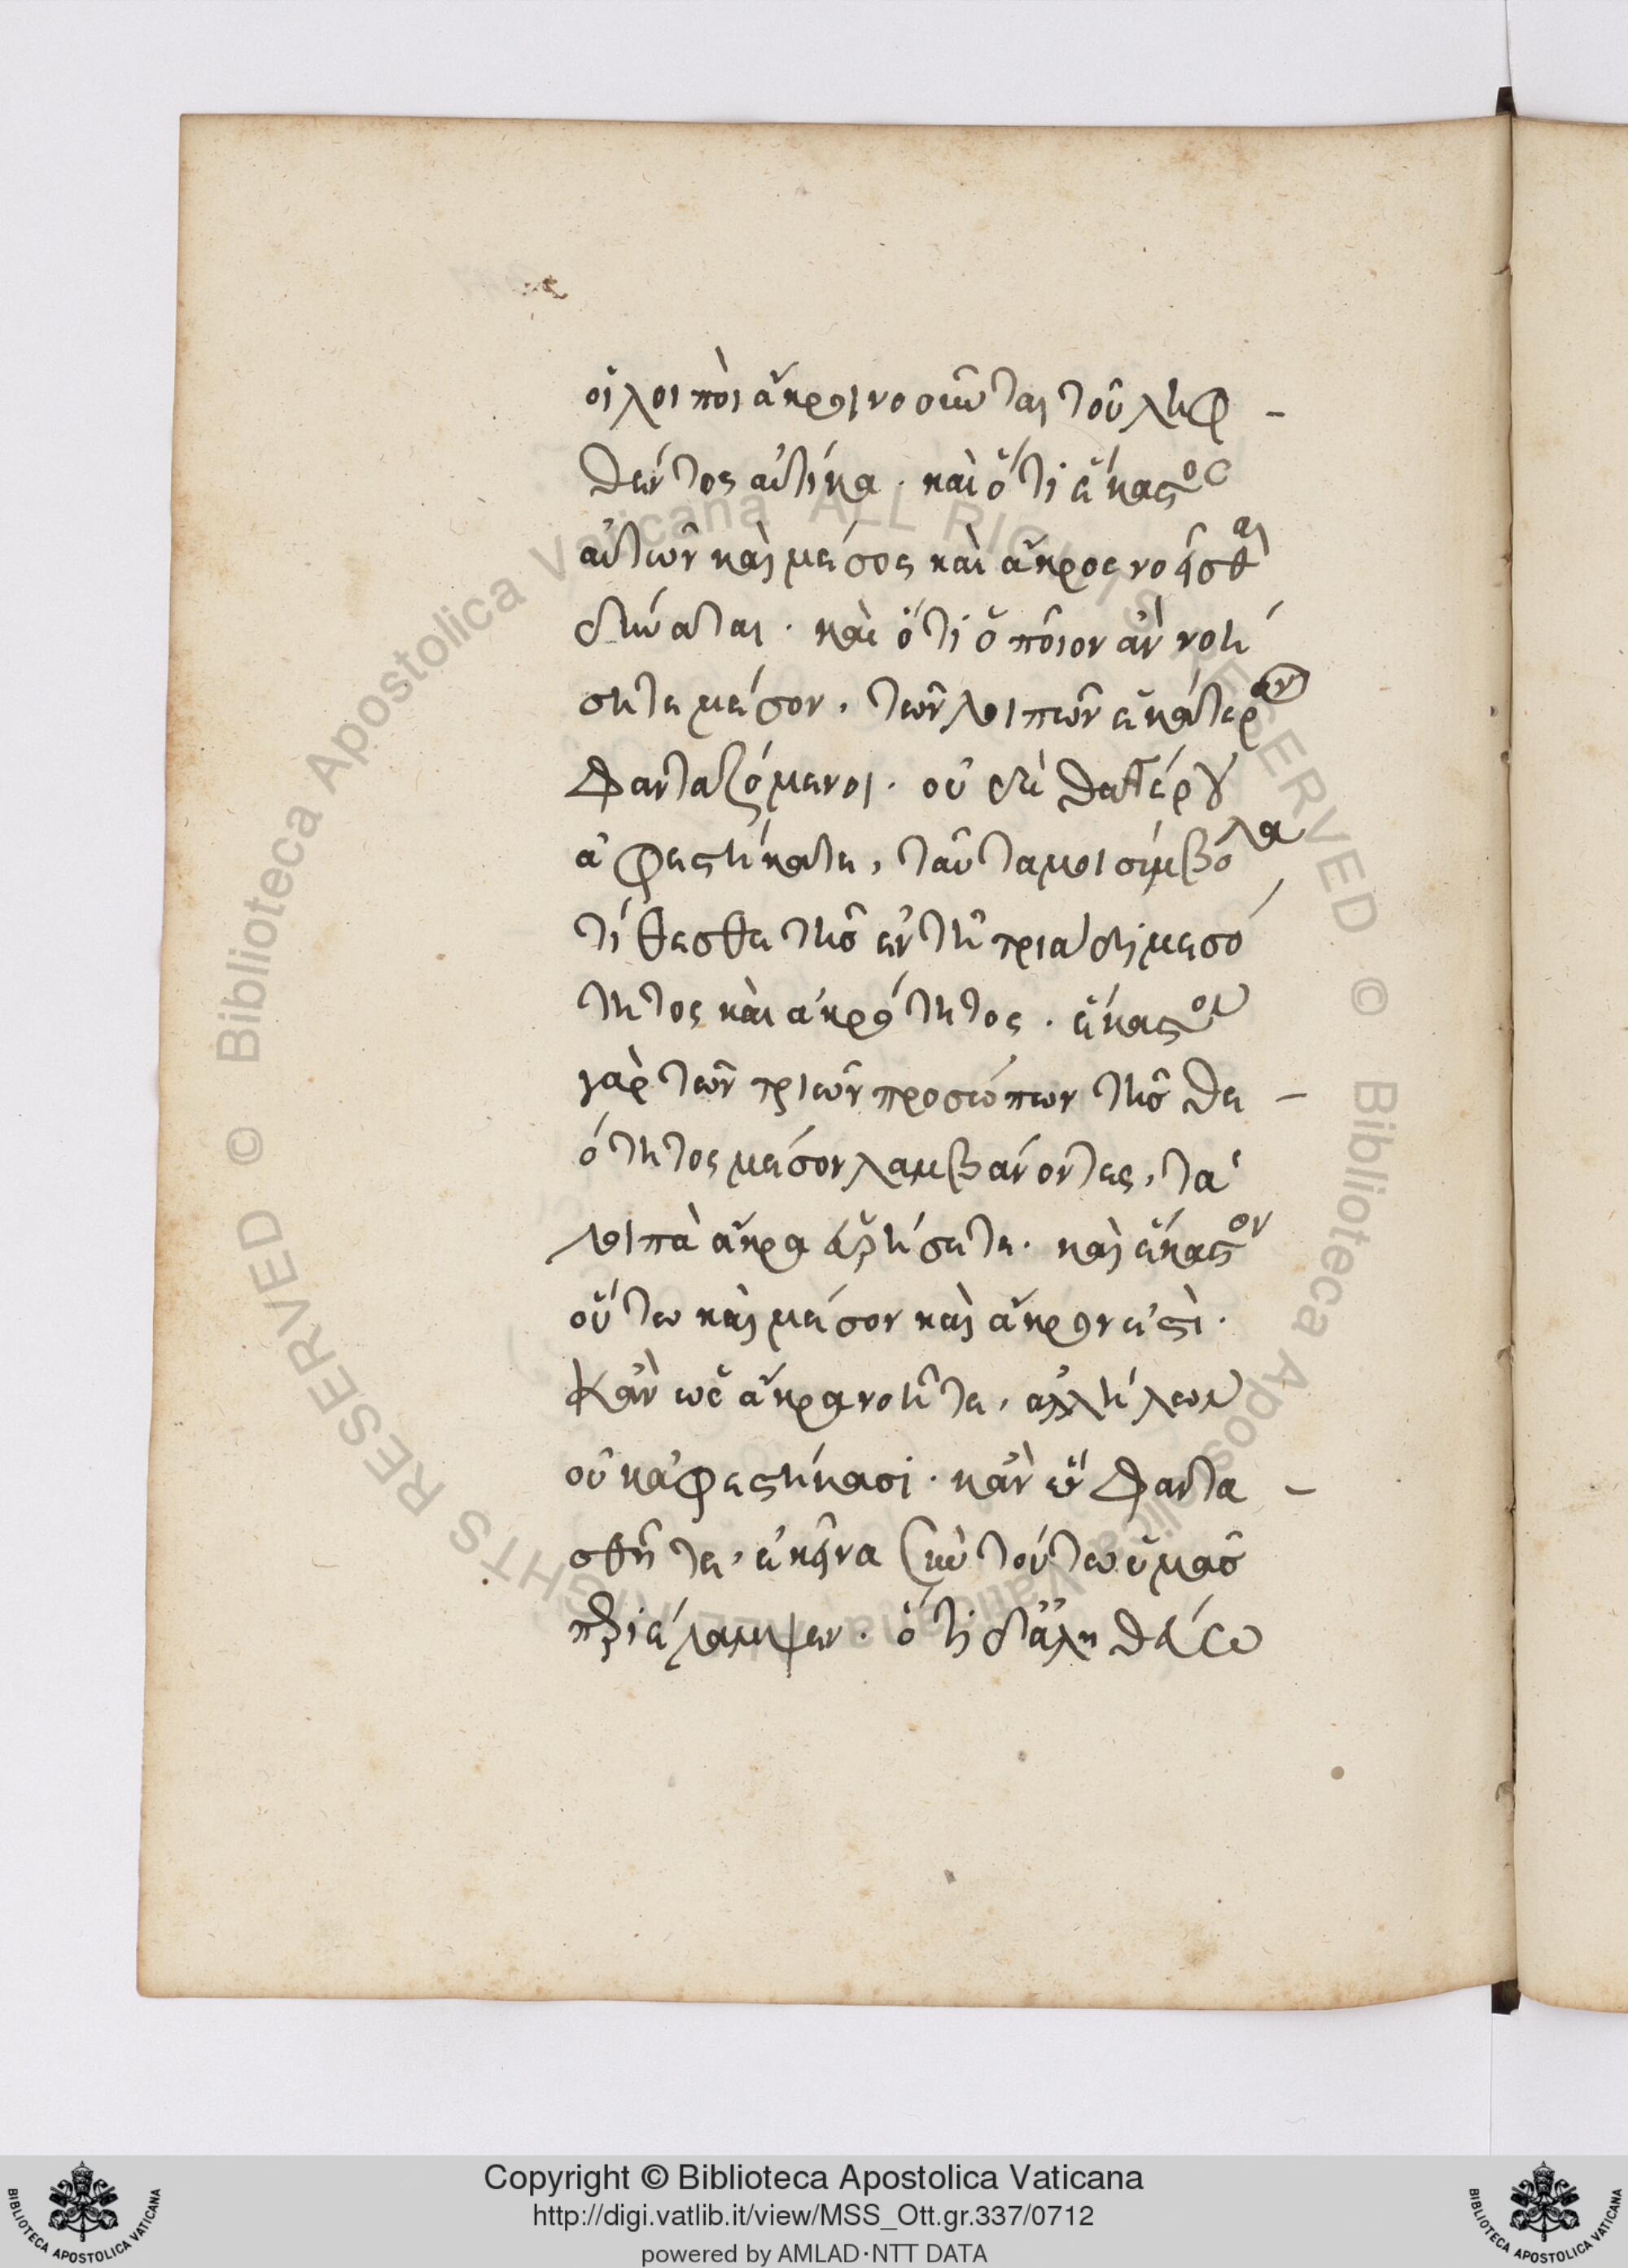 οἱ λοιποὶ ἄκροι νοοῦνται τοῦ ληφ -
θέντος αὐτίκα · καὶ ὅτι ἕκαστος
αὐτῶν καὶ μέσος καὶ ἄκρος νοεῖσθαι
δύναται · καὶ ὅτι ὁποῖον ἂν νοή
σητε μέσον, τῶν λοιπῶν ἑκάτερον
φανταζόμενοι · οὐδὲ θατέρου
ἀφεστήκατε, ταῦτα μοι σύμβολα
τίθεσθε τῆς ἐν τῇ τριάδι μεσό
τητος καὶ ἀκρότητος · ἕκαστον
γὰρ τῶν τριῶν προσώπων τῆς θε -
ότητος μέσον λαμβάνοντες, τὰ
λοιπὰ ἄκρα εὑρήσετε · καὶ ἕκαστον
οὕτω καὶ μέσον καὶ ἄκρον ἐστὶ ·
Κἂν ὡς ἄκρα νοῆτε, ἀλλήλων
οὐκ ἀφεστήκασι · κἂν ἓν φαντα -
σθῆτε, ἐκεῖνα σὺν τούτῳ ὑμᾶς
περιέλαμψεν · ὅτι δ' ἀληθές
Copyright © Biblioteca Apostolica Vaticana
http://digi.vatlib.it/view/MSS_Ott.gr.337/0712
powered by AMLAD·NTT DATA
BIBLIOTECA APOSTOLICA VATICANA
BIBLIOTECA APOSTOLICA VATICANA
Biblioteca Apostolica Vaticana ALL RIGHTS RESERVED © Biblioteca Apostolica Vaticana ALL RIGHTS RESERVED ©